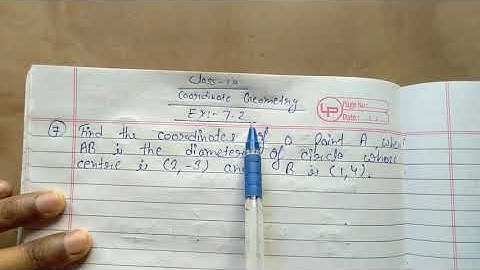 Class-10
Coordinate Geometry
Ex:- 7.2
LP Page No:
Date:
7 Find the coordinates of a point A, where
AB is the diameter of circle whose
centre is (2,-3) and B is (1,4).